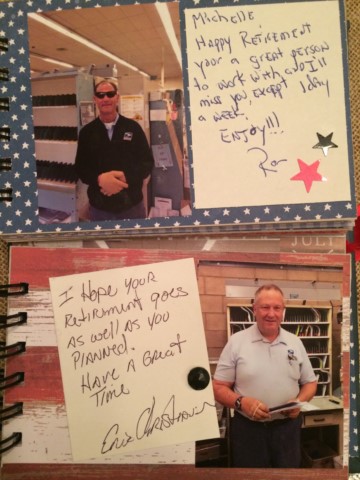 Michelle,
Happy Retirement
your a great person
to work with and I'll
miss you, except 1 day
a week.
Enjoy!!!
Ron
JULY
I Hope your
Retirement goes
as well as you
planned.
Have a great
time
Eric